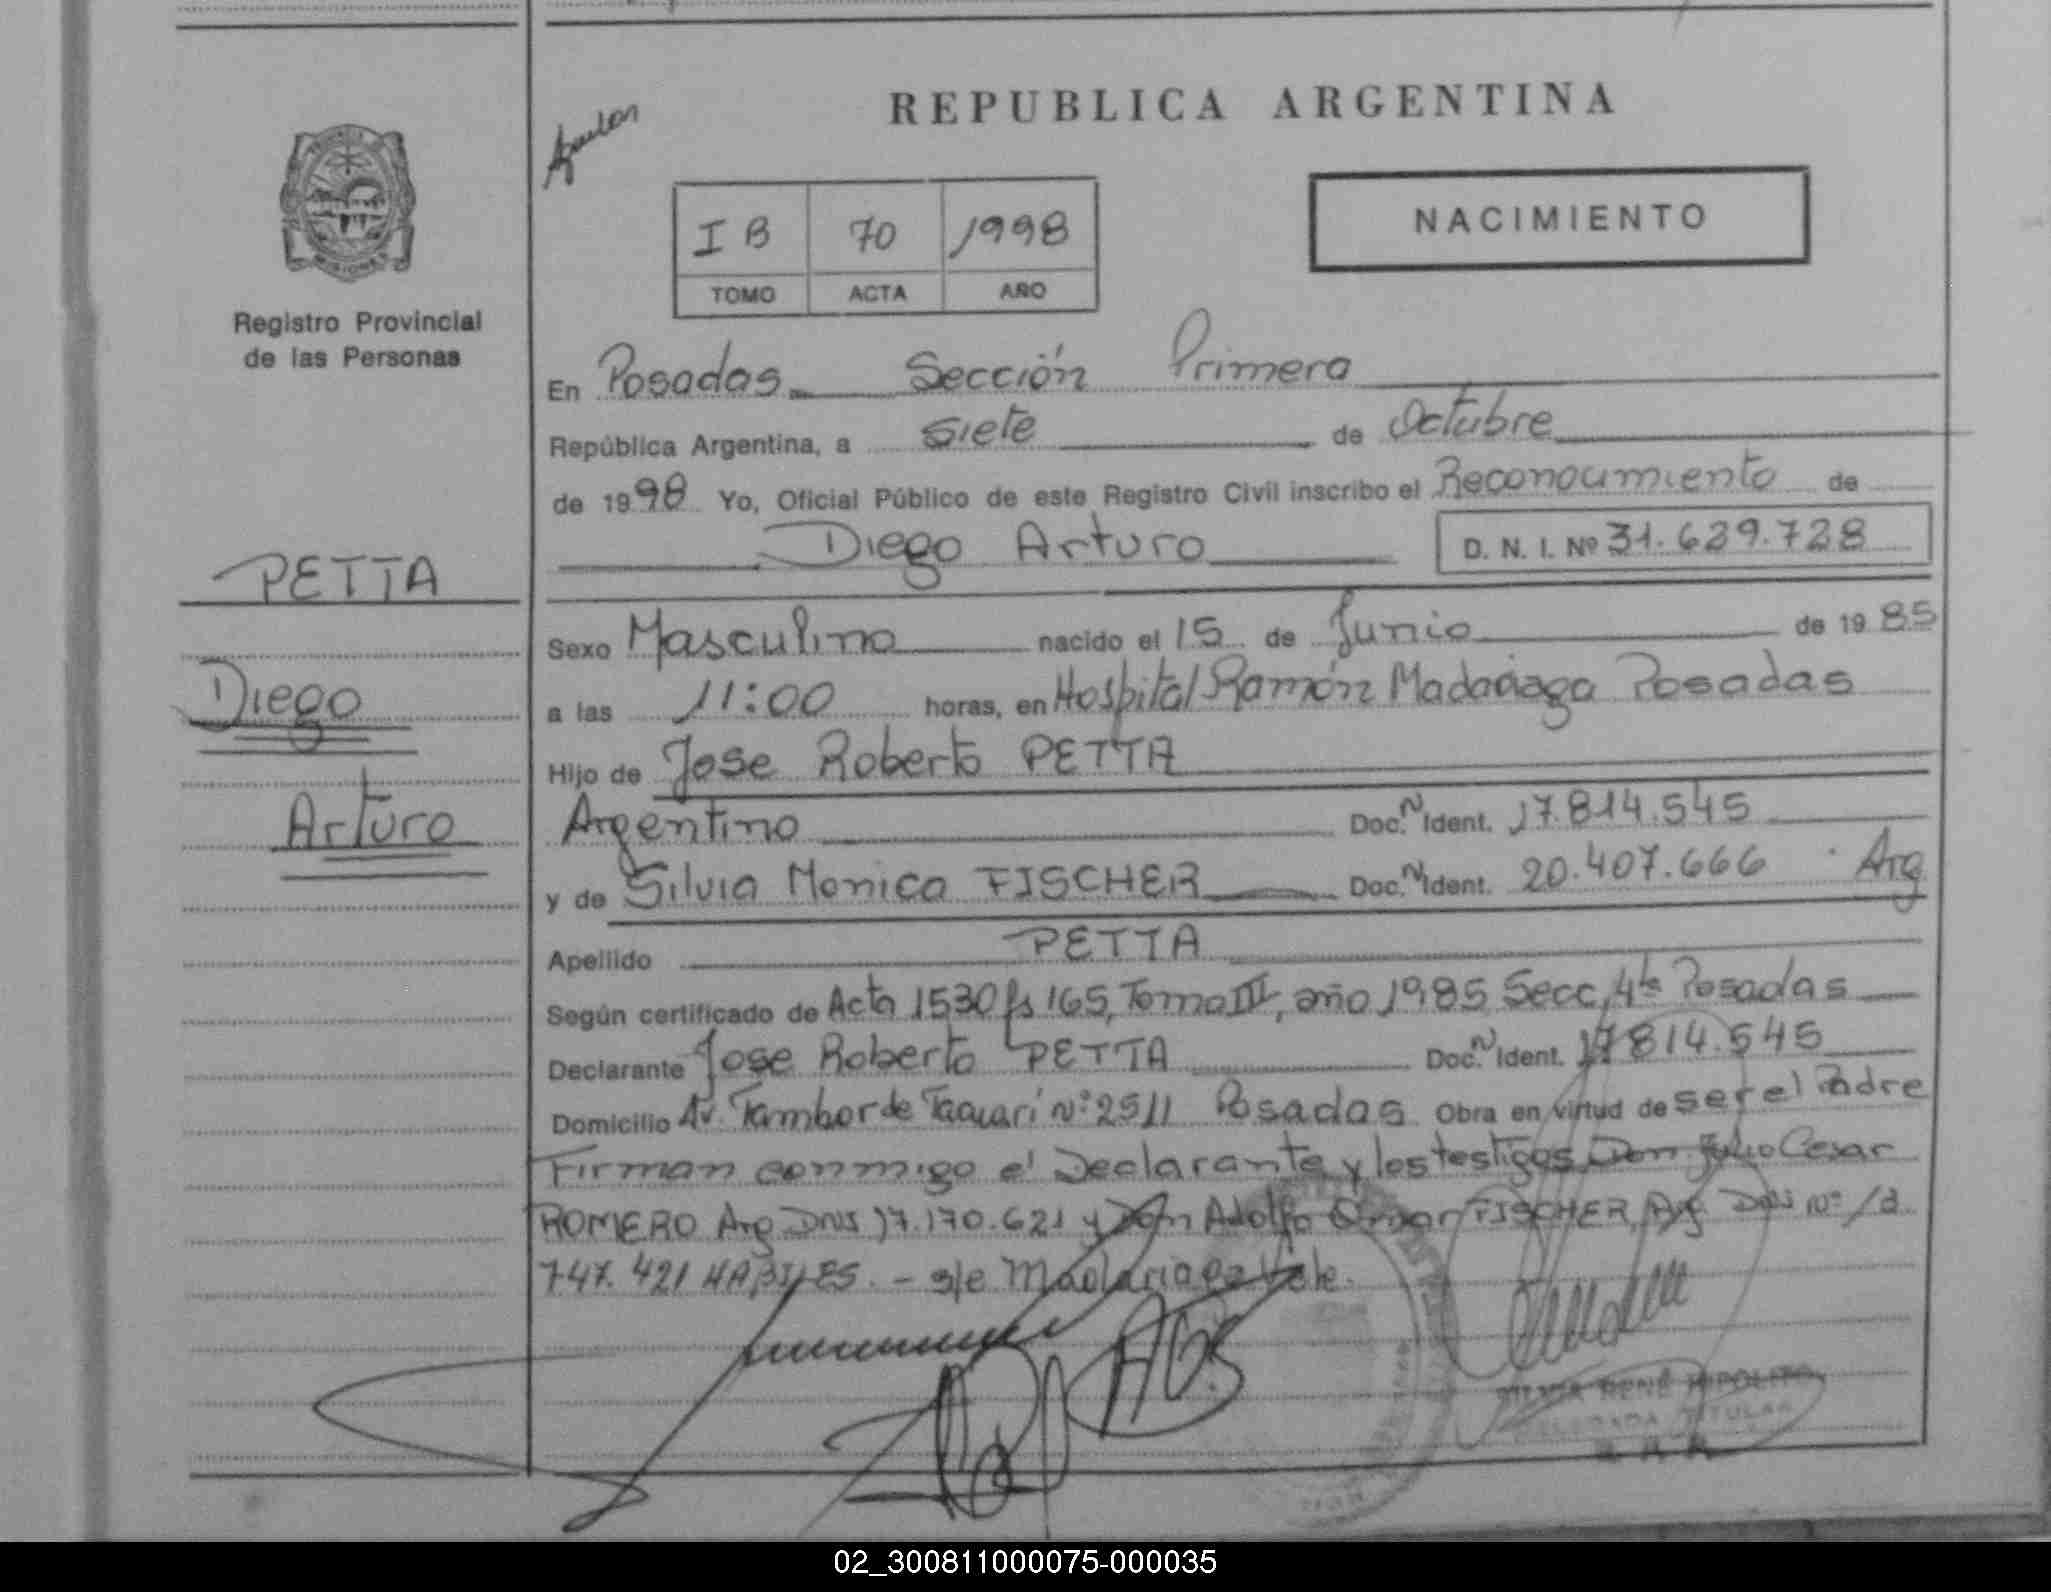 REPUBLICA ARGENTINA
I B 70 1998
TOMO ACTA AÑO
NACIMIENTO
MISIONES
Registro Provincial
de las Personas
PETTA
Diego
Arturo
En Posadas Sección Primera
República Argentina, a siete de Octubre
de 1998 Yo, Oficial Público de este Registro Civil inscribo el Reconocimiento de
Diego Arturo D. N. I. Nº 31.629.728
Sexo Masculino nacido el 15 de Junio de 1985
a las 11:00 horas, en Hospital Ramón Madariaga Posadas
Hijo de Jose Roberto PETTA
Argentino Doc. N Ident. 17.814.545
y de Silvia Monica FISCHER Doc. N Ident. 20.407.666 Arg
Apellido PETTA
Según certificado de Acta 1530 fs 165, Tomo III, año 1985 Secc, 4ta Posadas
Declarante Jose Roberto PETTA Doc. N Ident. 17814.545
Domicilio Av. Tambor de Tacuarí Nº 2511 Posadas Obra en virtud de ser el Padre
Firman conmigo el Declarante y los testigos Don Julio Cesar
ROMERO Arg DNI 17.170.621 y Don Adolfo Omar FISCHER Arg DNI Nº
747.421 HABILES. - s/e Madariaga Vale.
RENÉ HIPOLITO
DELEGADA TITULAR
02_300811000075-000035